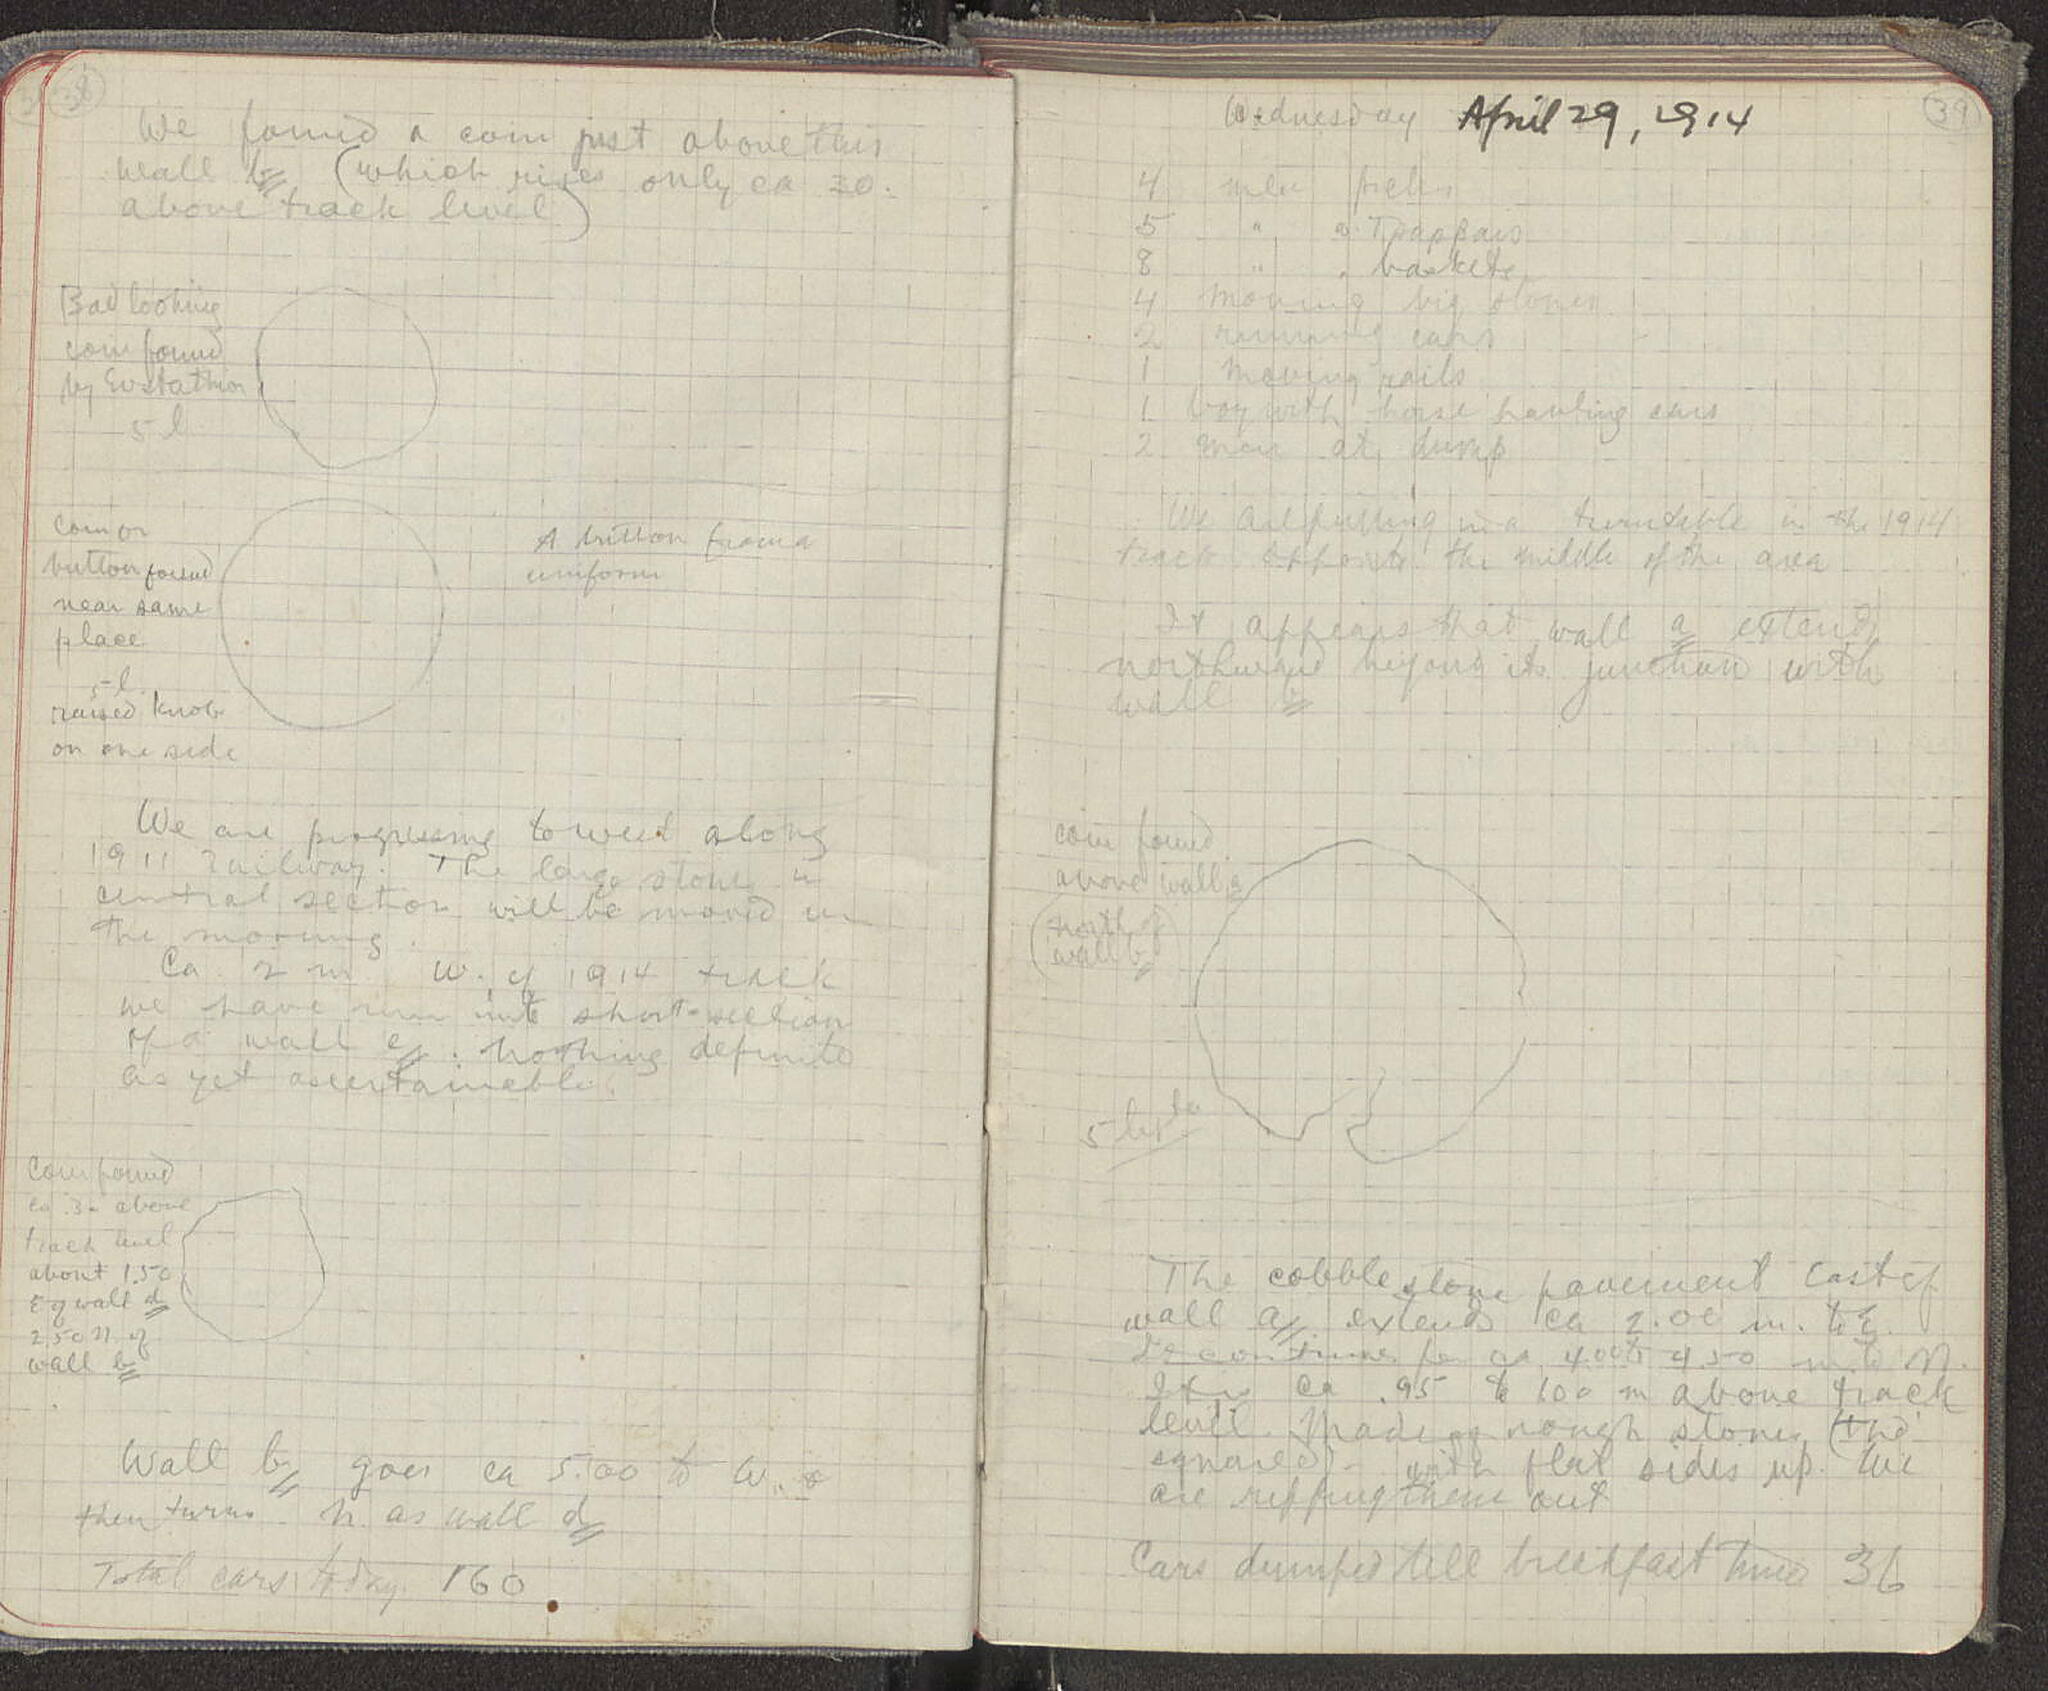 38
We found a coin just above this
wall b (which rises only ca 30.
above track level)
Bad looking
coin found
by Eustathios
5 l
Coin or
button found
near same
place
5 l.
raised knob
on one side
A button from a
uniform
We are progressing to west along
1911 railway. The large stone in
central section will be moved in
the morning.
Ca 2 m W. of 1914 track
we have run into short section
of a wall e. Nothing definite
as yet ascertainable.
Coin found
ca .30 above
track level
about 1.50
E of wall d
2.50 N. of
wall b
Wall b goes ca 5.00 to W. &
then turns N. as wall d
Total cars today 160
39
Wednesday April 29, 1914
4 men picks
5 " " Tsappais
8 " " baskets
4 moving big stones
2 running cars
1 moving rails
1 boy with horse hauling cars
2 men at dump
We are putting in a turntable in the 1914
track opposite the middle of the area
It appears that wall a extends
northward beyond its junction with
wall b
coin found
above wall a
(north of
wall b)
5 lepta
The cobble stone pavement east of
wall a extends ca 2.00 m. to E.
It continues for ca 4.00 to 4.50 m to N.
It is ca .95 to 1.00 m above track
level. Made of rough stones (
squared) with flat sides up. We
are ripping them out
Cars dumped till breakfast time 36